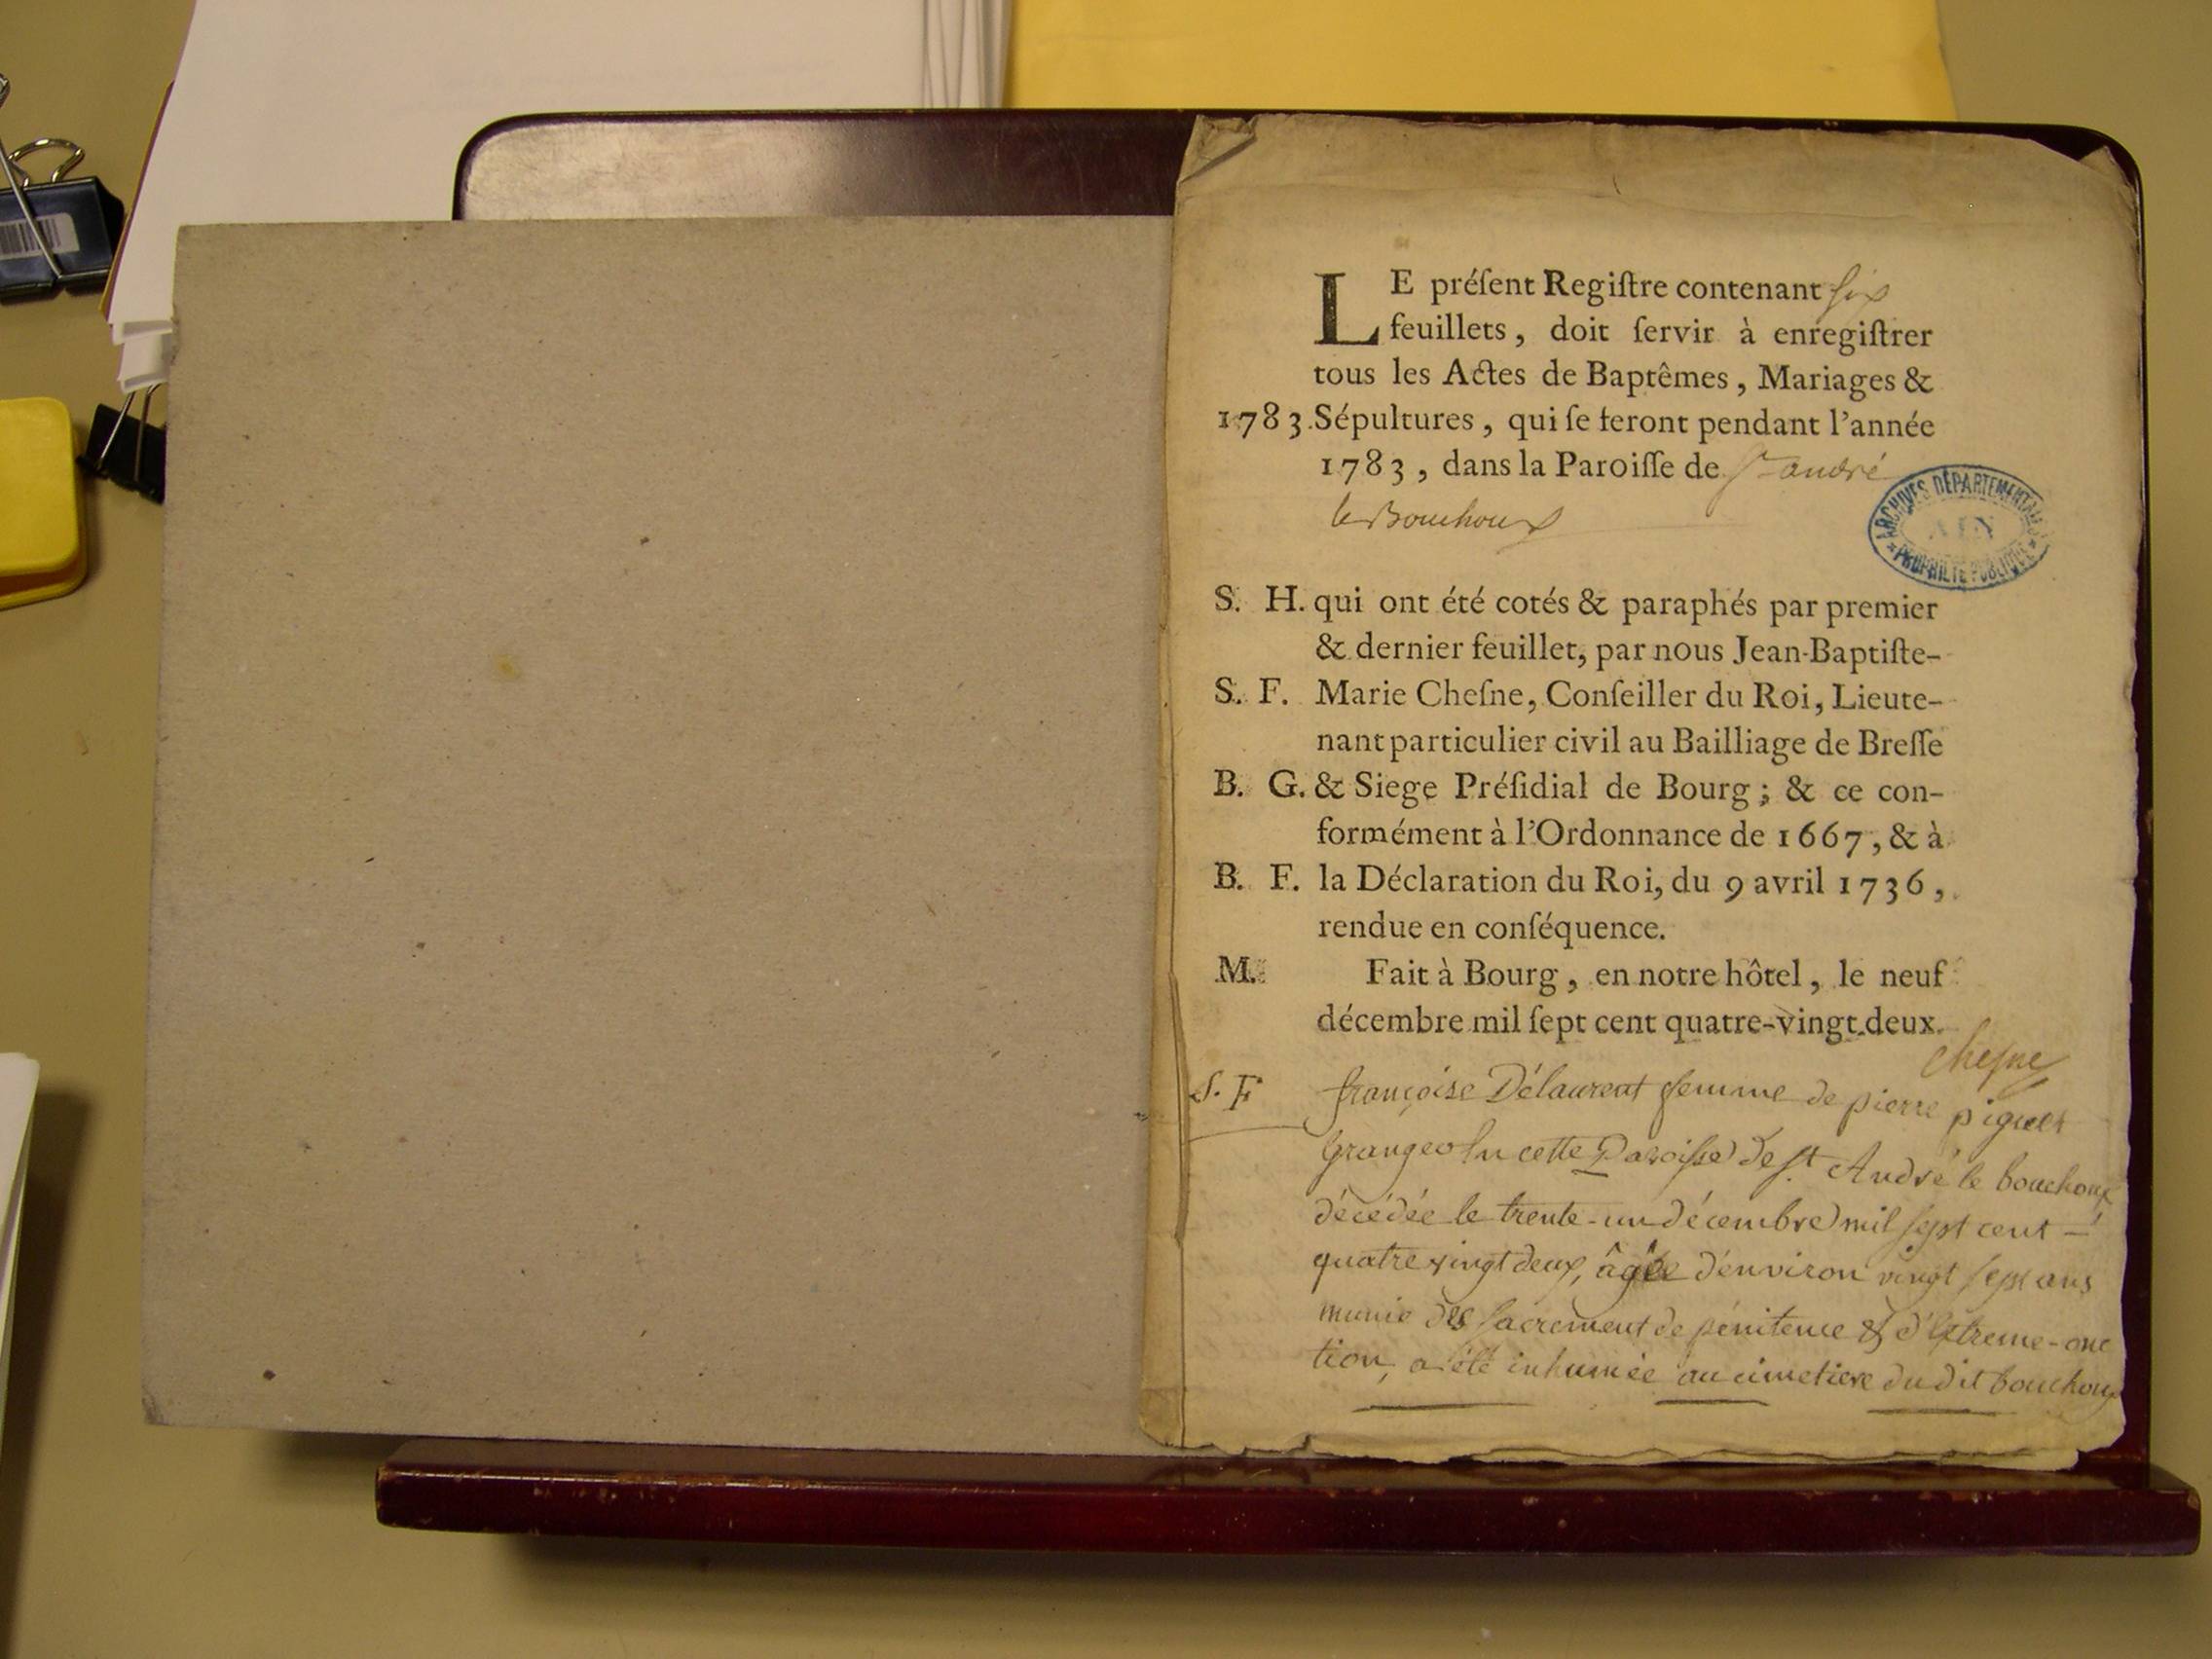 LE préſent Regiſtre contenant six
feuillets, doit ſervir à enregiſtrer
tous les Actes de Baptêmes, Mariages &
1783. Sépultures, qui ſe feront pendant l'année
1783, dans la Paroiſſe de St andré
le Bouchoux
ARCHIVES DÉPARTEMENTALES
AIN
PROPRIÉTÉ PUBLIQUE
S. H. qui ont été cotés & paraphés par premier
& dernier feuillet, par nous Jean-Baptiſte-
S. F. Marie Cheſne, Conſeiller du Roi, Lieute-
nant particulier civil au Bailliage de Breſſe
B. G. & Siege Préſidial de Bourg; & ce con-
formément à l'Ordonnance de 1667, & à
B. F. la Déclaration du Roi, du 9 avril 1736,
rendue en conſéquence.
M. Fait à Bourg, en notre hôtel, le neuf
décembre mil ſept cent quatre-vingt-deux.
Cheſne
S. F françoise Délaurent femme de pierre piguet
granger en cette Paroiſſe de St. André le bouchoux
décédée le trente-un décembre mil ſept cent
quatre vingt deux, âgée d'environ vingt ſept ans
munie des ſacrement de pénitence & d'extreme-onc
tion, a été inhumée au cimetiere du dit bouchoux